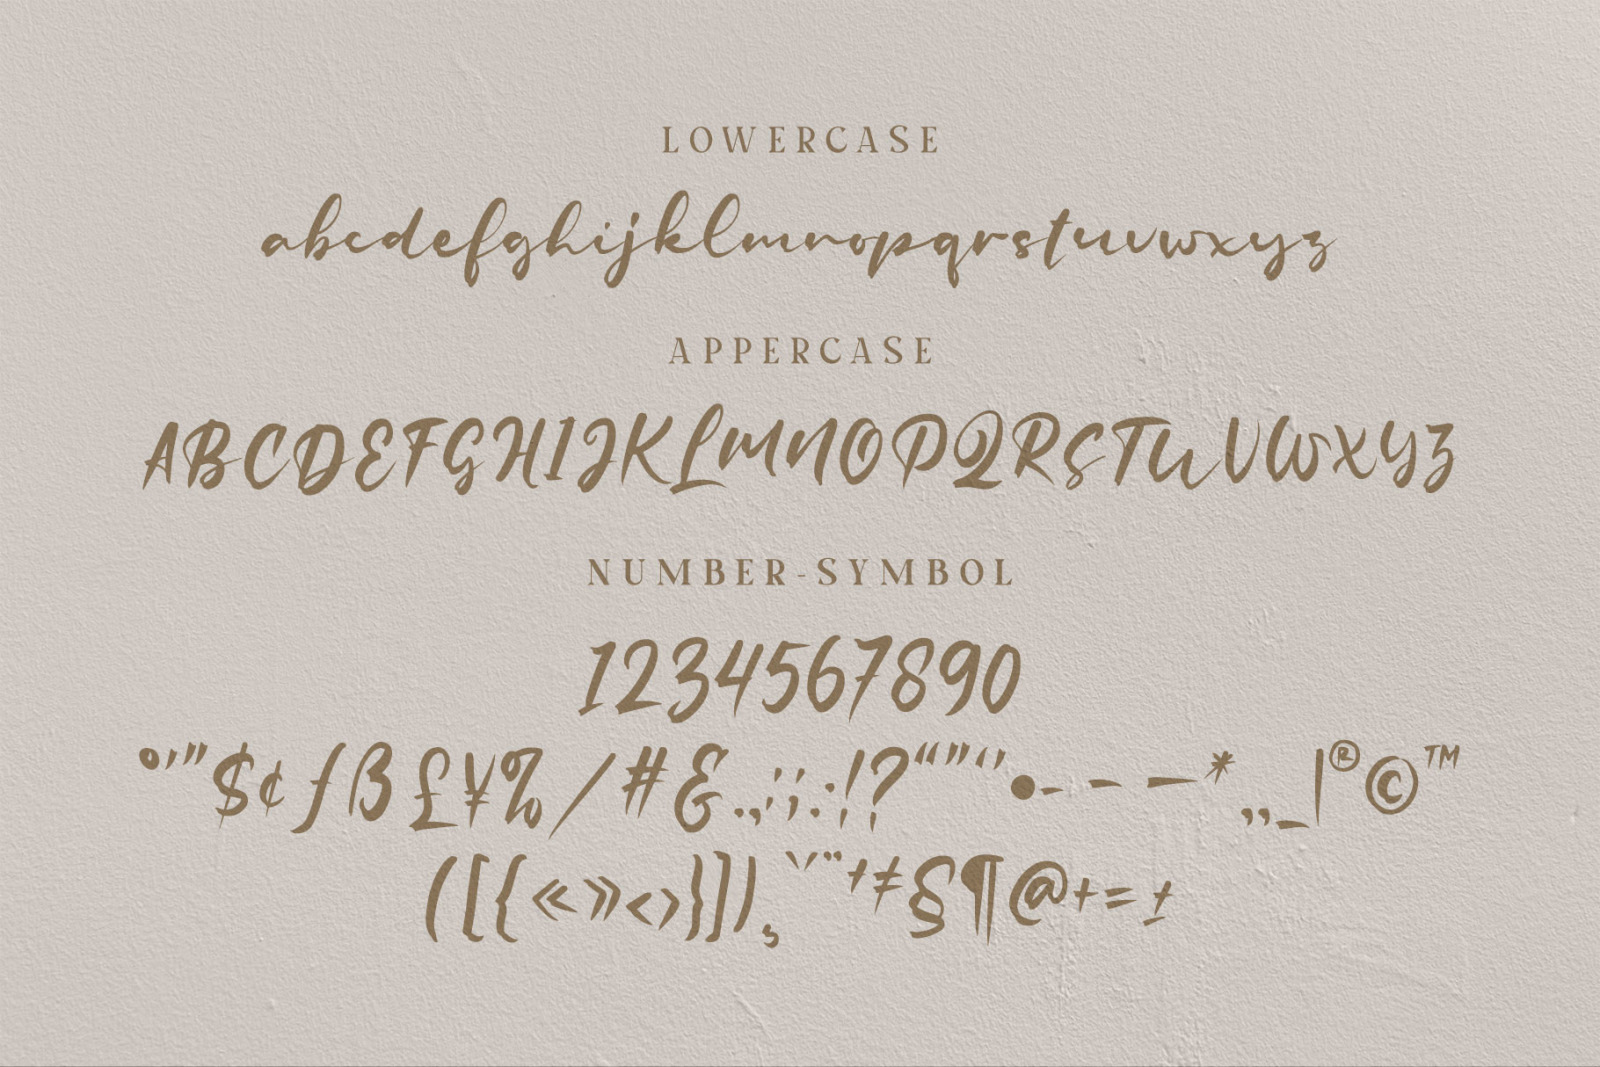 LOWERCASE
abcdefghijklmnopqrstuvwxyz
APPERCASE
ABCDEFGHIJKLMNOPQRSTUVWXYZ
NUMBER-SYMBOL
1234567890
°'"$¢ƒß£¥%/#&.,;;:!?“”"‘’•-–—*‚„_|®©™
([{«»‹›}])¸`´¨†‡§¶@+=±